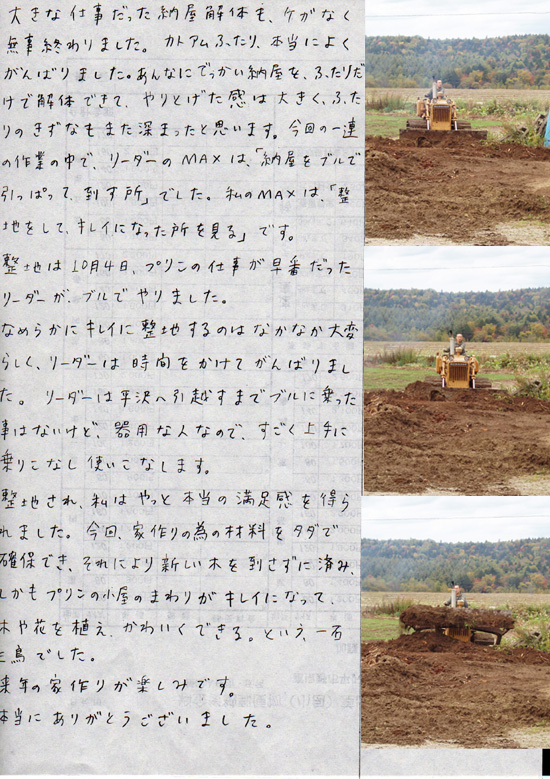 大きな仕事だった納屋解体も、ケガなく
無事終わりました。カトアムふたり、本当によく
がんばりました。あんなにでっかい納屋を、ふたりだ
けで解体できて、やりとげた感は大きく、ふた
りのきずなもまた深まったと思います。今回の一連
の作業の中で、リーダーのMAXは、「納屋をブルで
引っぱって、到す所」でした。私のMAXは、「整
地をして、キレイになった所を見る」です。
整地は10月4日、プリンの仕事が早番だった
リーダーが、ブルでやりました。
なめらかにキレイに整地するのはなかなか大変
らしく、リーダーは時間をかけてがんばりまし
た。リーダーは平沢へ引越すまでブルに乗った
事はないけど、器用な人なので、すごく上手に
乗りこなし使いこなします。
整地され、私はやっと本当の満足感を得ら
れました。今回、家作りの為の材料をタダで
確保でき、それにより新しい木を到さずに済み、
しかもプリンの小屋のまわりがキレイになって、
木や花を植え、かわいくできる。という、一石
二鳥でした。
来年の家作りが楽しみです。
本当にありがとうございました。